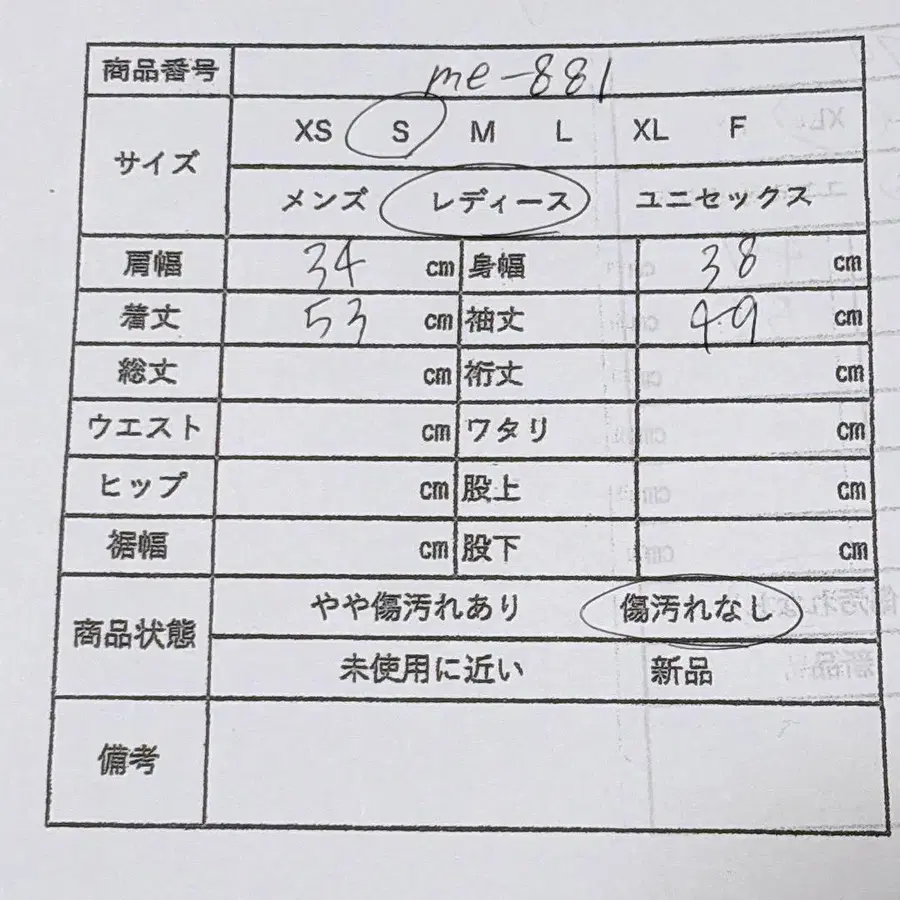 商品番号 me-881
サイズ XS S M L XL F
メンズ レディース ユニセックス
肩幅 34 cm 身幅 38 cm
着丈 53 cm 袖丈 49 cm
総丈 cm 裄丈 cm
ウエスト cm ワタリ cm
ヒップ cm 股上 cm
裾幅 cm 股下 cm
商品状態 やや傷汚れあり 傷汚れなし
未使用に近い 新品
備考